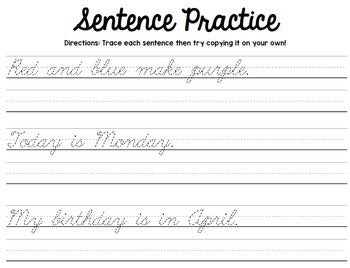 Sentence Practice
Directions: Trace each sentence then try copying it on your own!
Red and blue make purple.
Today is Monday.
My birthday is in April.